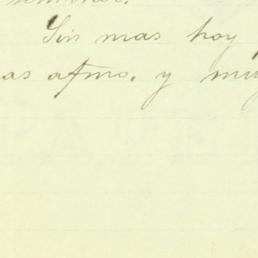 Sin mas hoy
as afmo. y muy